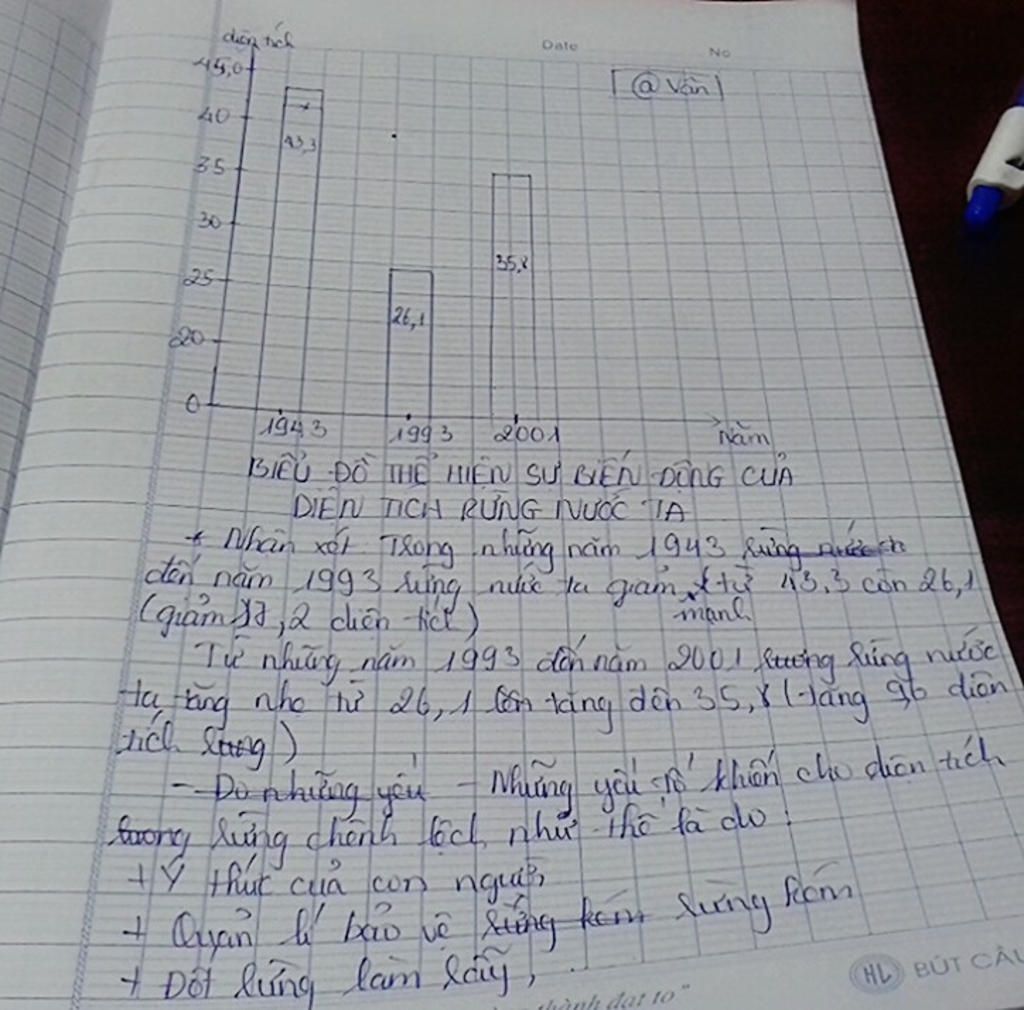 diện tích
Date No
@ Vân
45,0
40
35
30
25
20
0
43,3
26,1
35,8
1943 1993 2001 Năm
BIỂU ĐỒ THỂ HIỆN SỰ BIẾN ĐỘNG CỦA
DIỆN TÍCH RỪNG NƯỚC TA
* Nhận xét. Trong những năm 1943
đến năm 1993 rừng nước ta giảm mạnh từ 43,3 còn 26,1
(giảm 17,2 diện tích)
Từ những năm 1993 đến năm 2001 rừng nước
ta tăng nhẹ từ 26,1 lên tăng đến 35,8 (tăng 9,6 diện
tích rừng)
- Do những yếu - Những yếu tố khiến cho diện tích
rừng chênh lệch như thế là do:
+ Ý thức của con người,
+ Quản lí bảo vệ rừng kém rừng kém
+ Đốt rừng làm rẫy,
HL BÚT CÂU
thành đạt to"